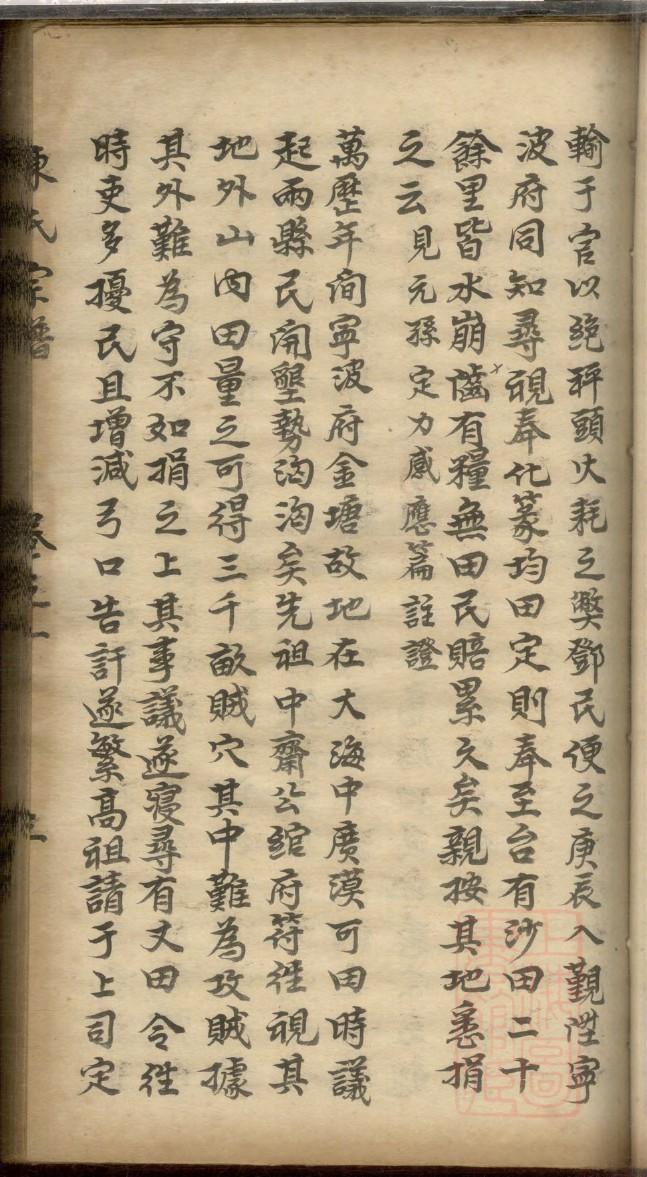 輸于官以絕秤頭火耗之獘鄧民便之庚辰入覲陞寧
波府同知尋視奉化篆均田定則奉至台有沙田二十
餘里皆水崩齧有糧無田民賠累久矣親按其地悉捐
之云見元孫定力感應篇註證
萬歷年間寧波府金塘故地在大海中廣漠可田時議
起兩縣民開墾勢洶洶矣先祖中齋公綰府符徃視其
地外山內田量之可得三千畝賊穴其中難為攻賊據
其外難為守不如捐之上其事議遂寢尋有丈田令徃
時吏多擾民且增減弓口告訐遂繁高祖請于上司定
陳氏宗譜 卷之一